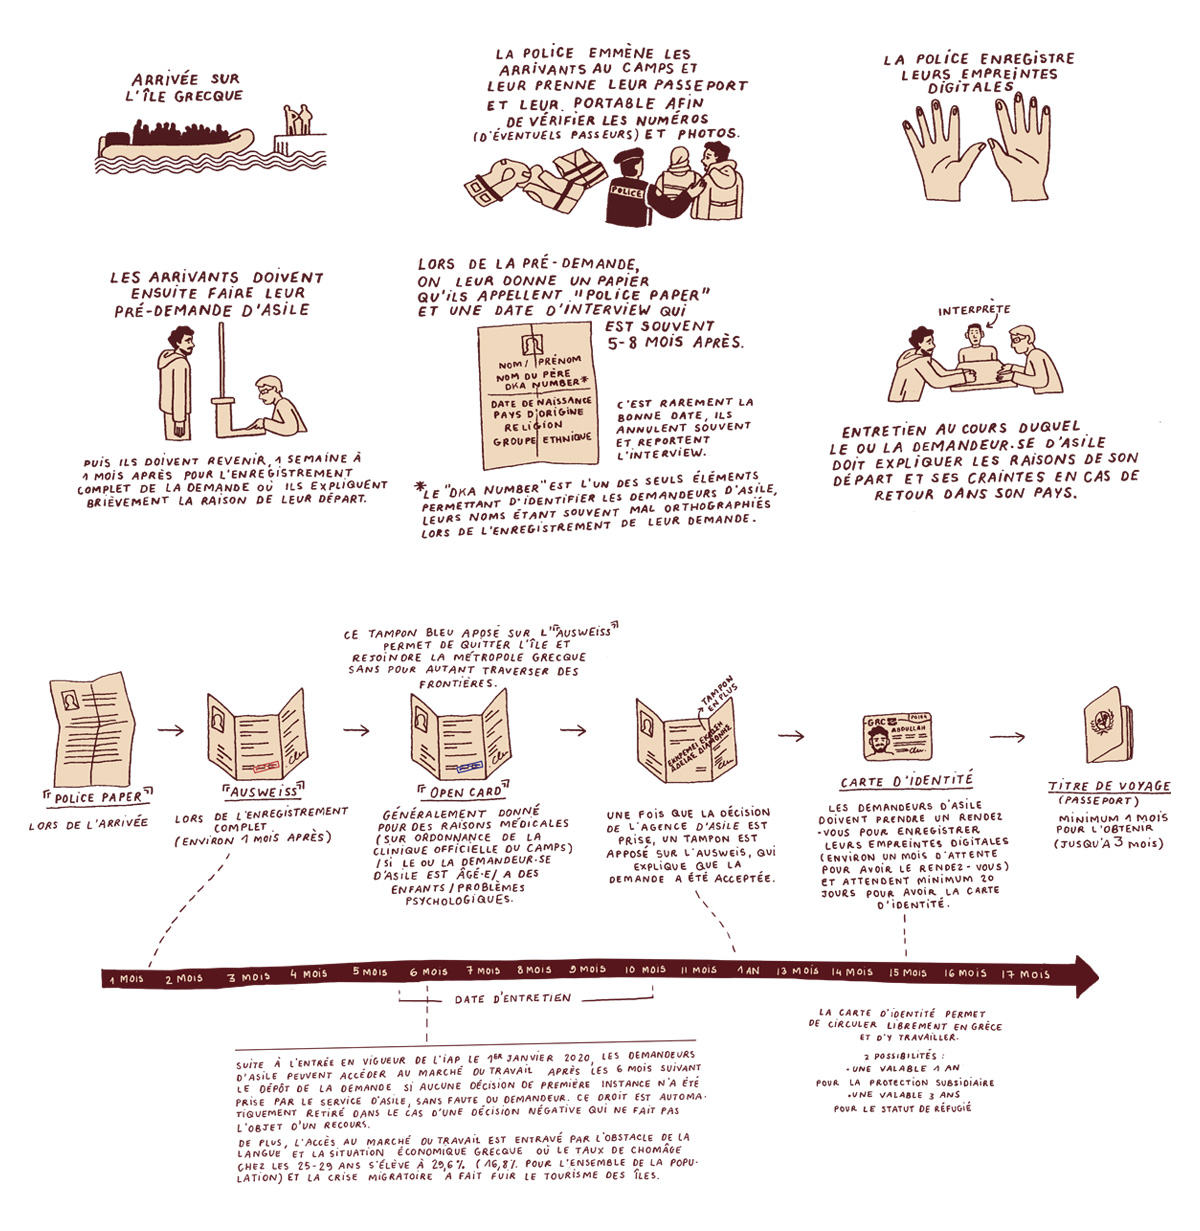 ARRIVÉE SUR
L'ÎLE GRECQUE
LA POLICE EMMÈNE LES
ARRIVANTS AU CAMPS ET
LEUR PRENNE LEUR PASSEPORT
ET LEUR PORTABLE AFIN
DE VÉRIFIER LES NUMÉROS
(D'ÉVENTUELS PASSEURS) ET PHOTOS.
POLICE
LA POLICE ENREGISTRE
LEURS EMPREINTES
DIGITALES
LES ARRIVANTS DOIVENT
ENSUITE FAIRE LEUR
PRÉ-DEMANDE D'ASILE
PUIS ILS DOIVENT REVENIR, 1 SEMAINE À
1 MOIS APRÈS POUR L'ENREGISTREMENT
COMPLET DE LA DEMANDE OÙ ILS EXPLIQUENT
BRIÈVEMENT LA RAISON DE LEUR DÉPART.
LORS DE LA PRÉ-DEMANDE,
ON LEUR DONNE UN PAPIER
QU'ILS APPELLENT "POLICE PAPER"
ET UNE DATE D'INTERVIEW QUI
EST SOUVENT
5-8 MOIS APRÈS.
NOM/ PRÉNOM
NOM DU PÈRE
DKA NUMBER*
DATE DE NAISSANCE
PAYS D'ORIGINE
RELIGION
GROUPE ETHNIQUE
C'EST RAREMENT LA
BONNE DATE, ILS
ANNULENT SOUVENT
ET REPORTENT
L'INTERVIEW.
*LE "DKA NUMBER" EST L'UN DES SEULS ÉLÉMENTS
PERMETTANT D'IDENTIFIER LES DEMANDEURS D'ASILE,
LEURS NOMS ÉTANT SOUVENT MAL ORTHOGRAPHIÉS
LORS DE L'ENREGISTREMENT DE LEUR DEMANDE.
INTERPRÈTE
ENTRETIEN AU COURS DUQUEL
LE OU LA DEMANDEUR.SE D'ASILE
DOIT EXPLIQUER LES RAISONS DE SON
DÉPART ET SES CRAINTES EN CAS DE
RETOUR DANS SON PAYS.
"POLICE PAPER"
LORS DE L'ARRIVÉE
"AUSWEISS"
LORS DE L'ENREGISTREMENT
COMPLET
(ENVIRON 1 MOIS APRÈS)
CE TAMPON BLEU APOSÉ SUR L'"AUSWEISS"
PERMET DE QUITTER L'ÎLE ET
REJOINDRE LA MÉTROPOLE GRECQUE
SANS POUR AUTANT TRAVERSER DES
FRONTIÈRES.
"OPEN CARD"
GÉNÉRALEMENT DONNÉ
POUR DES RAISONS MÉDICALES
(SUR ORDONNANCE DE LA
CLINIQUE OFFICIELLE DU CAMPS)
/SI LE OU LA DEMANDEUR.SE
D'ASILE EST ÂGÉ·E/ A DES
ENFANTS/PROBLÈMES
PSYCHOLOGIQUES.
TAMPON
EN PLUS
UNE FOIS QUE LA DÉCISION
DE L'AGENCE D'ASILE EST
PRISE, UN TAMPON EST
APPOSÉ SUR L'AUSWEIS, QUI
EXPLIQUE QUE LA
DEMANDE A ÉTÉ ACCEPTÉE.
GRC
ABDULLAH
CARTE D'IDENTITÉ
LES DEMANDEURS D'ASILE
DOIVENT PRENDRE UN RENDEZ
-VOUS POUR ENREGISTRER
LEURS EMPREINTES DIGITALES
(ENVIRON UN MOIS D'ATTENTE
POUR AVOIR LE RENDEZ-VOUS)
ET ATTENDENT MINIMUM 20
JOURS POUR AVOIR LA CARTE
D'IDENTITÉ.
TITRE DE VOYAGE
(PASSEPORT)
MINIMUM 1 MOIS
POUR L'OBTENIR
(JUSQU'À 3 MOIS)
1 MOIS 2 MOIS 3 MOIS 4 MOIS 5 MOIS 6 MOIS 7 MOIS 8 MOIS 9 MOIS 10 MOIS 11 MOIS 1 AN 13 MOIS 14 MOIS 15 MOIS 16 MOIS 17 MOIS
DATE D'ENTRETIEN
SUITE À L'ENTRÉE EN VIGUEUR DE L'IAP LE 1ER JANVIER 2020, LES DEMANDEURS
D'ASILE PEUVENT ACCÉDER AU MARCHÉ DU TRAVAIL APRÈS LES 6 MOIS SUIVANT
LE DÉPÔT DE LA DEMANDE SI AUCUNE DÉCISION DE PREMIÈRE INSTANCE N'A ÉTÉ
PRISE PAR LE SERVICE D'ASILE, SANS FAUTE DU DEMANDEUR. CE DROIT EST AUTOMA-
TIQUEMENT RETIRÉ DANS LE CAS D'UNE DÉCISION NÉGATIVE QUI NE FAIT PAS
L'OBJET D'UN RECOURS.
DE PLUS, L'ACCÈS AU MARCHÉ DU TRAVAIL EST ENTRAVÉ PAR L'OBSTACLE DE LA
LANGUE ET LA SITUATION ÉCONOMIQUE GRECQUE OÙ LE TAUX DE CHOMÂGE
CHEZ LES 25-29 ANS S'ÉLÈVE À 29,6% (16,8% POUR L'ENSEMBLE DE LA POPU-
LATION) ET LA CRISE MIGRATOIRE A FAIT FUIR LE TOURISME DES ÎLES.
LA CARTE D'IDENTITÉ PERMET
DE CIRCULER LIBREMENT EN GRÈCE
ET D'Y TRAVAILLER.
2 POSSIBILITÉS :
·UNE VALABLE 1 AN
POUR LA PROTECTION SUBSIDIAIRE
·UNE VALABLE 3 ANS
POUR LE STATUT DE RÉFUGIÉ